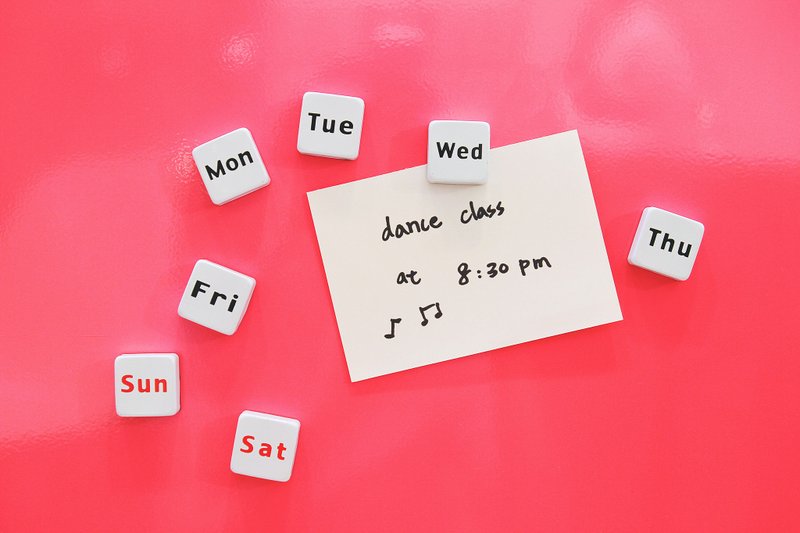 Tue
Mon
Wed
dance class
at 8:30 pm
Thu
Fri
Sun
Sat